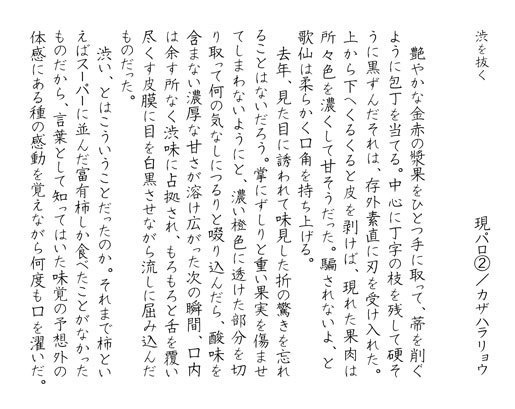 渋を抜く
現パロ②／カザハラリョウ
艶やかな金赤の漿果をひとつ手に取って、蔕を削ぐ
ように包丁を当てる。中心に丁字の枝を残して硬そ
うに黒ずんだそれは、存外素直に刃を受け入れた。
上から下へくるくると皮を剥けば、現れた果肉は
所々色を濃くして甘そうだった。騙されないよ、と
歌仙は柔らかく口角を持ち上げる。
去年、見た目に誘われて味見した折の驚きを忘れ
ることはないだろう。掌にずしりと重い果実を傷ませ
てしまわないようにと、濃い橙色に透けた部分を切
り取って何の気なしにつるりと啜り込んだら、酸味を
含まない濃厚な甘さが溶け広がった次の瞬間、口内
は余す所なく渋味に占拠され、もろもろと舌を覆い
尽くす皮膜に目を白黒させながら流しに屈み込んだ
ものだった。
渋い、とはこういうことだったのか。それまで柿とい
えばスーパーに並んだ富有柿しか食べたことがなかった
ものだから、言葉として知ってはいた味覚の予想外の
体感にある種の感動を覚えながら何度も口を濯いだ。